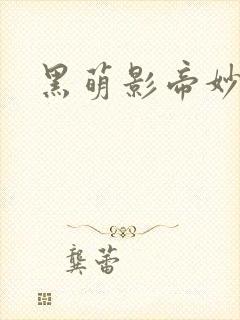 黑萌影帝妙
龚蕾